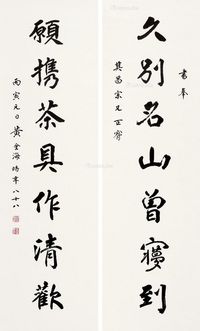 久别名山曾寱到
書奉
其昌宗兄正腕
願携茶具作清歡
丙寅元日
黄金海時年八十八